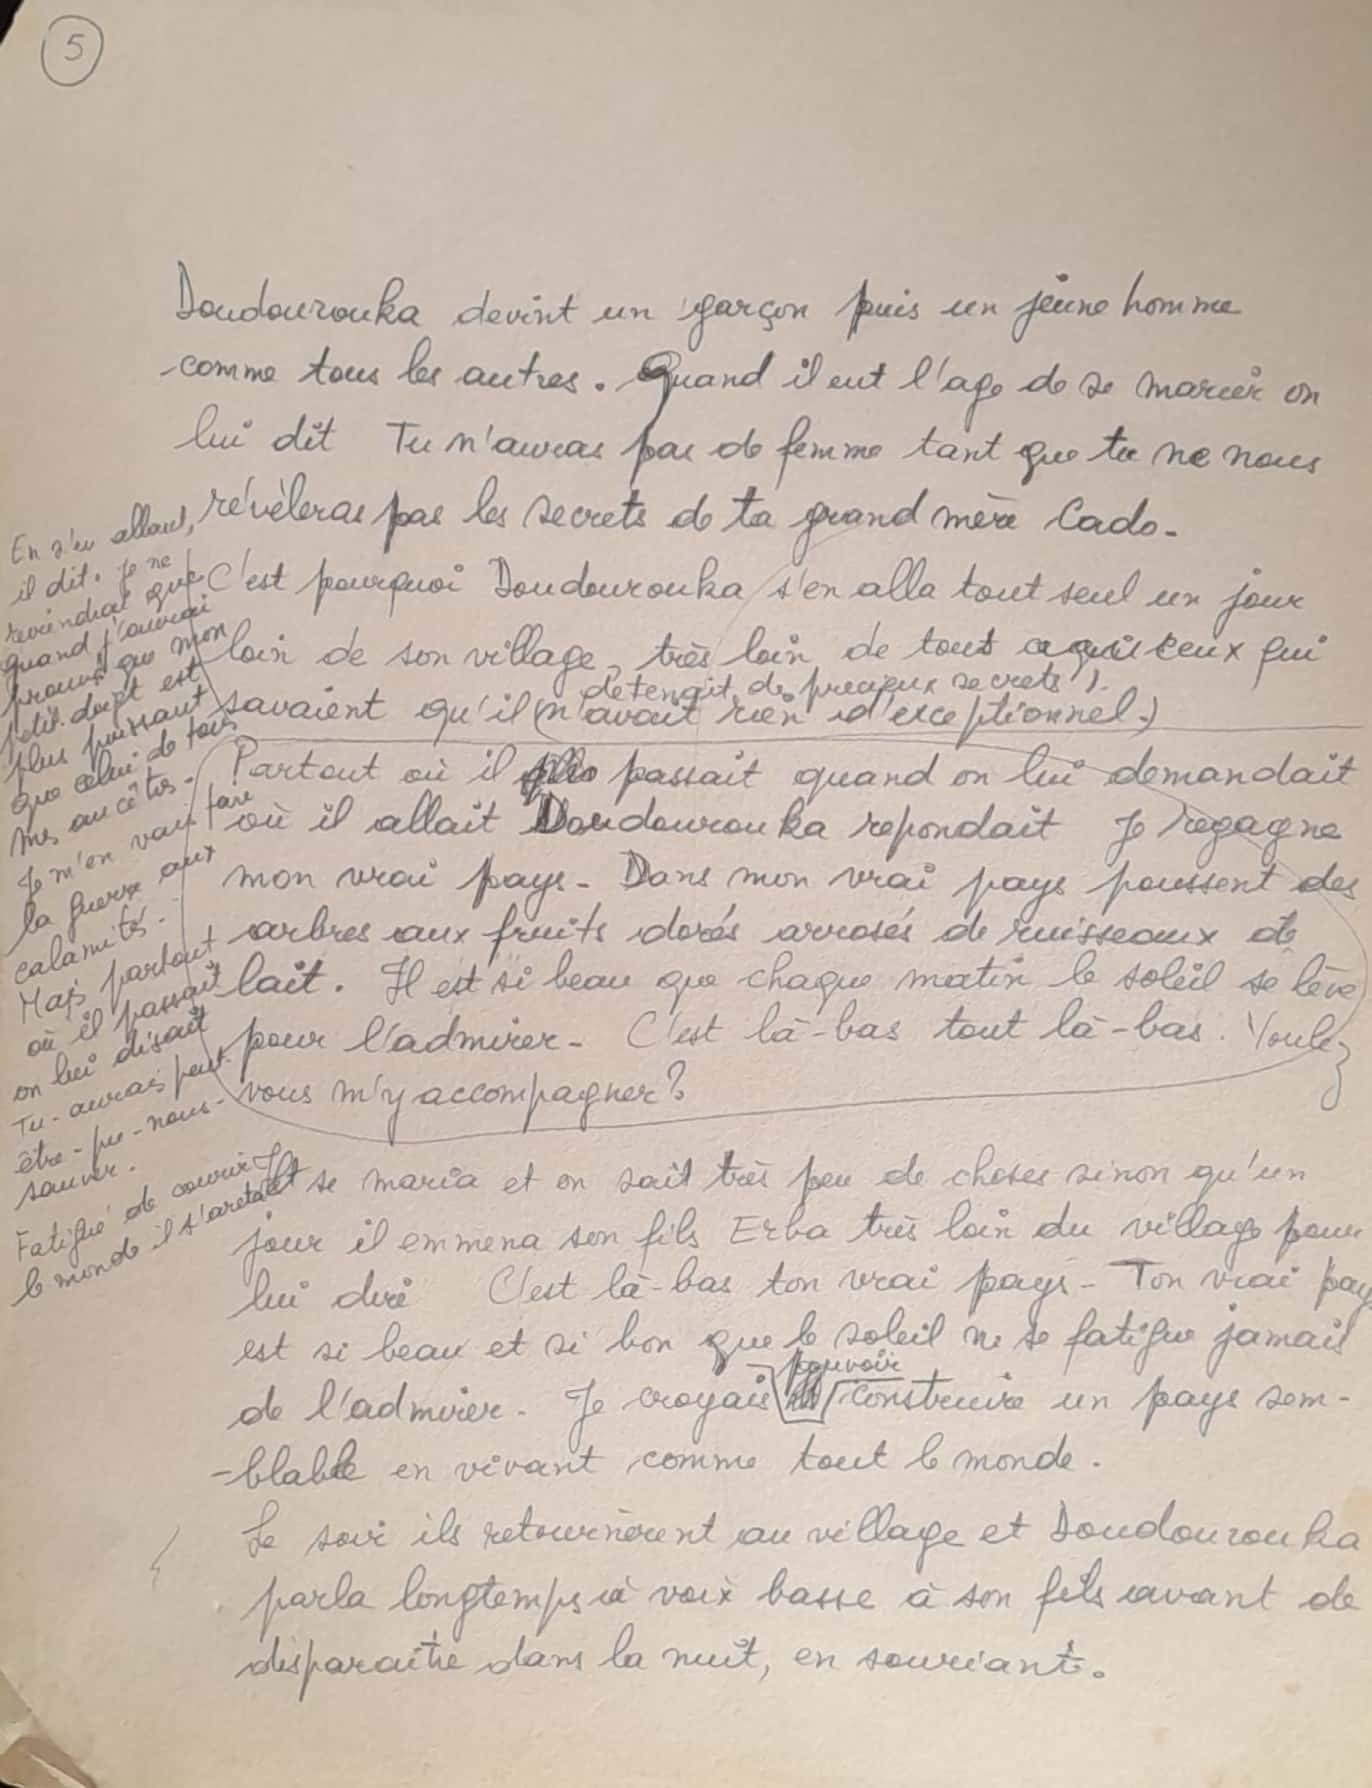 5
Doudourouka devint un garçon puis un jeune homme
comme tous les autres. Quand il eut l'age de se marier on
lui dit Tu n'auras pas de femme tant que tu ne nous
révèleras pas les secrets de ta grand mère Cado.
C'est pourquoi Doudourouka s'en alla tout seul un jour
loin de son village, très loin de tous ceux qui
détenait de précieux secrets ).
savaient qu'il (n'avait rien d'exceptionnel.)
Partout où il passait quand on lui demandait
où il allait Doudourouka repondait Je regagne
mon vrai pays - Dans mon vrai pays poussent des
arbres aux fruits dorés arrosés de ruisseaux de
lait. Il est si beau que chaque matin le soleil se lève
pour l'admirer - C'est là-bas tout là-bas. Voulez
vous m'y accompagner ?
En s'en allant,
il dit. Je ne
reviendrai que
quand j'aurai
prouvé que mon
petit doigt est
plus puissant
que celui de tous
mes ancêtres -
Je m'en vais faire
la guerre aux
calamités -
Mais partout
où il passait
on lui disait
Tu - aurais peut-
être - pu - nous -
sauver.
Fatigué de courir
le monde il s'arreta
Il se maria et on sait très peu de choses sinon qu'un
jour il emmena son fils Erba très loin du village pour
lui dire C'est là-bas ton vrai pays - Ton vrai pay
est si beau et si bon que le soleil ne se fatigue jamais
pouvoir
de l'admirer - Je croyais construire un pays sem-
-blable en vivant comme tout le monde.
Le soir ils retournèrent au village et Doudourouka
parla longtemps à voix basse à son fils avant de
disparaître dans la nuit, en souriant.